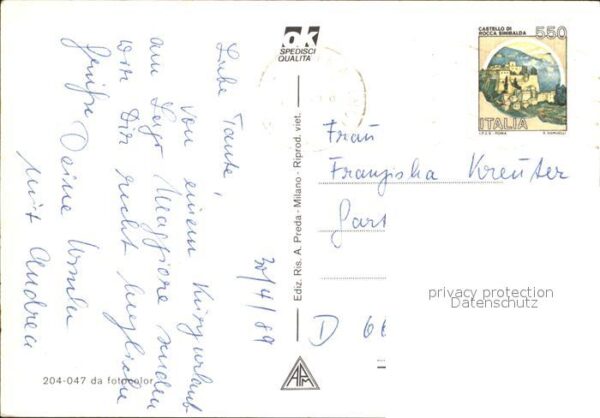 30/4/89
Liebe Tante,
von einem Kurzurlaub
am Lago Maggiore senden
wir Dir recht herzliche
Grüße Deine Ursula
mit Andrea
204-047 da fotocolor
ok
SPEDISCI
QUALITÀ
Ediz. Ris. A. Preda - Milano - Riprod. viet.
CASTELLO DI
ROCCA SINIBALDA
550
ITALIA
I.P.Z.S. - ROMA
Frau
Franziska Kreuter
Gart
D 66
privacy protection
Datenschutz